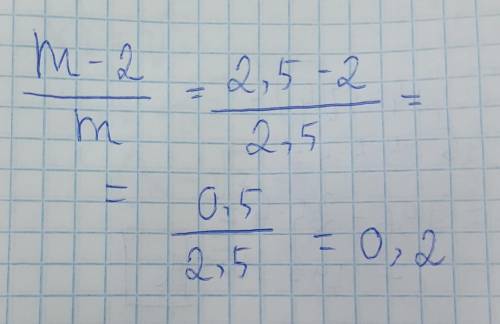 m - 2 / m = 2,5 - 2 / 2,5 =
= 0,5 / 2,5 = 0,2